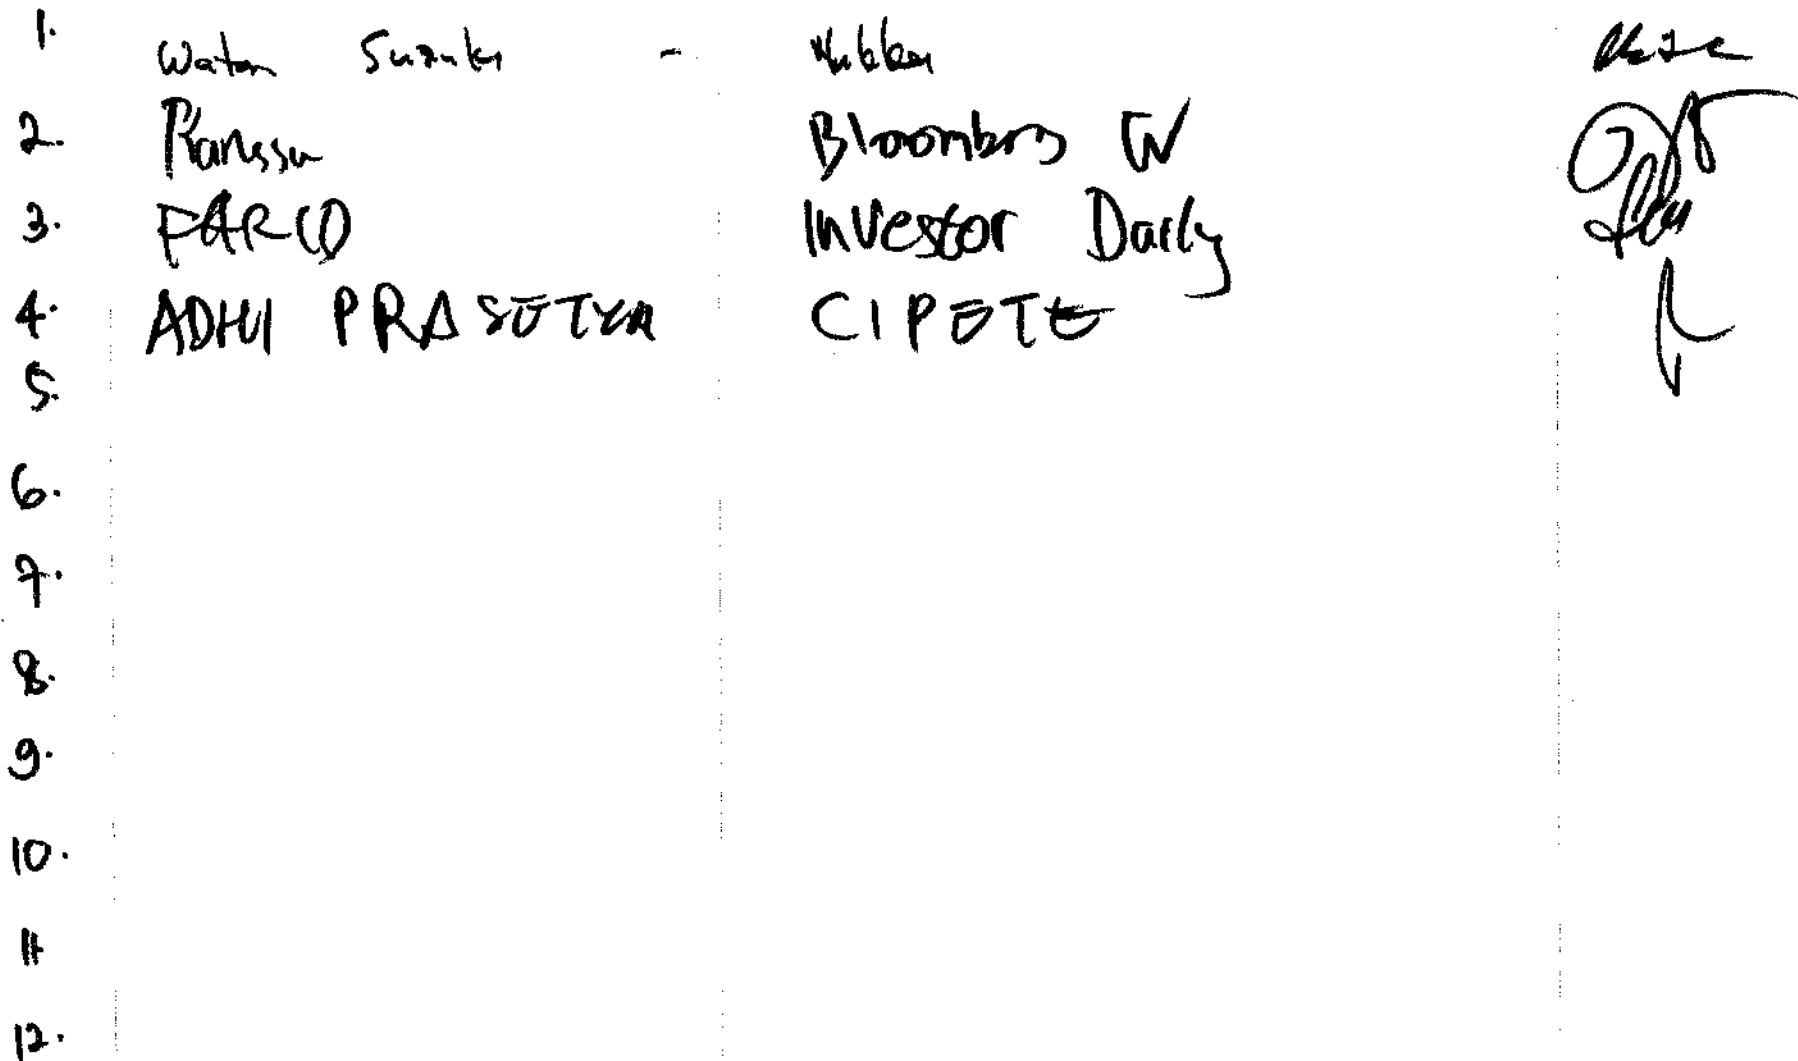 1. Wataru Suzuki - Nikkei
2. Bloomberg TV
3. FARID Investor Daily
4. ADHI PRASETYA CIPETE
5.
6.
7.
8.
9.
10.
11
12.